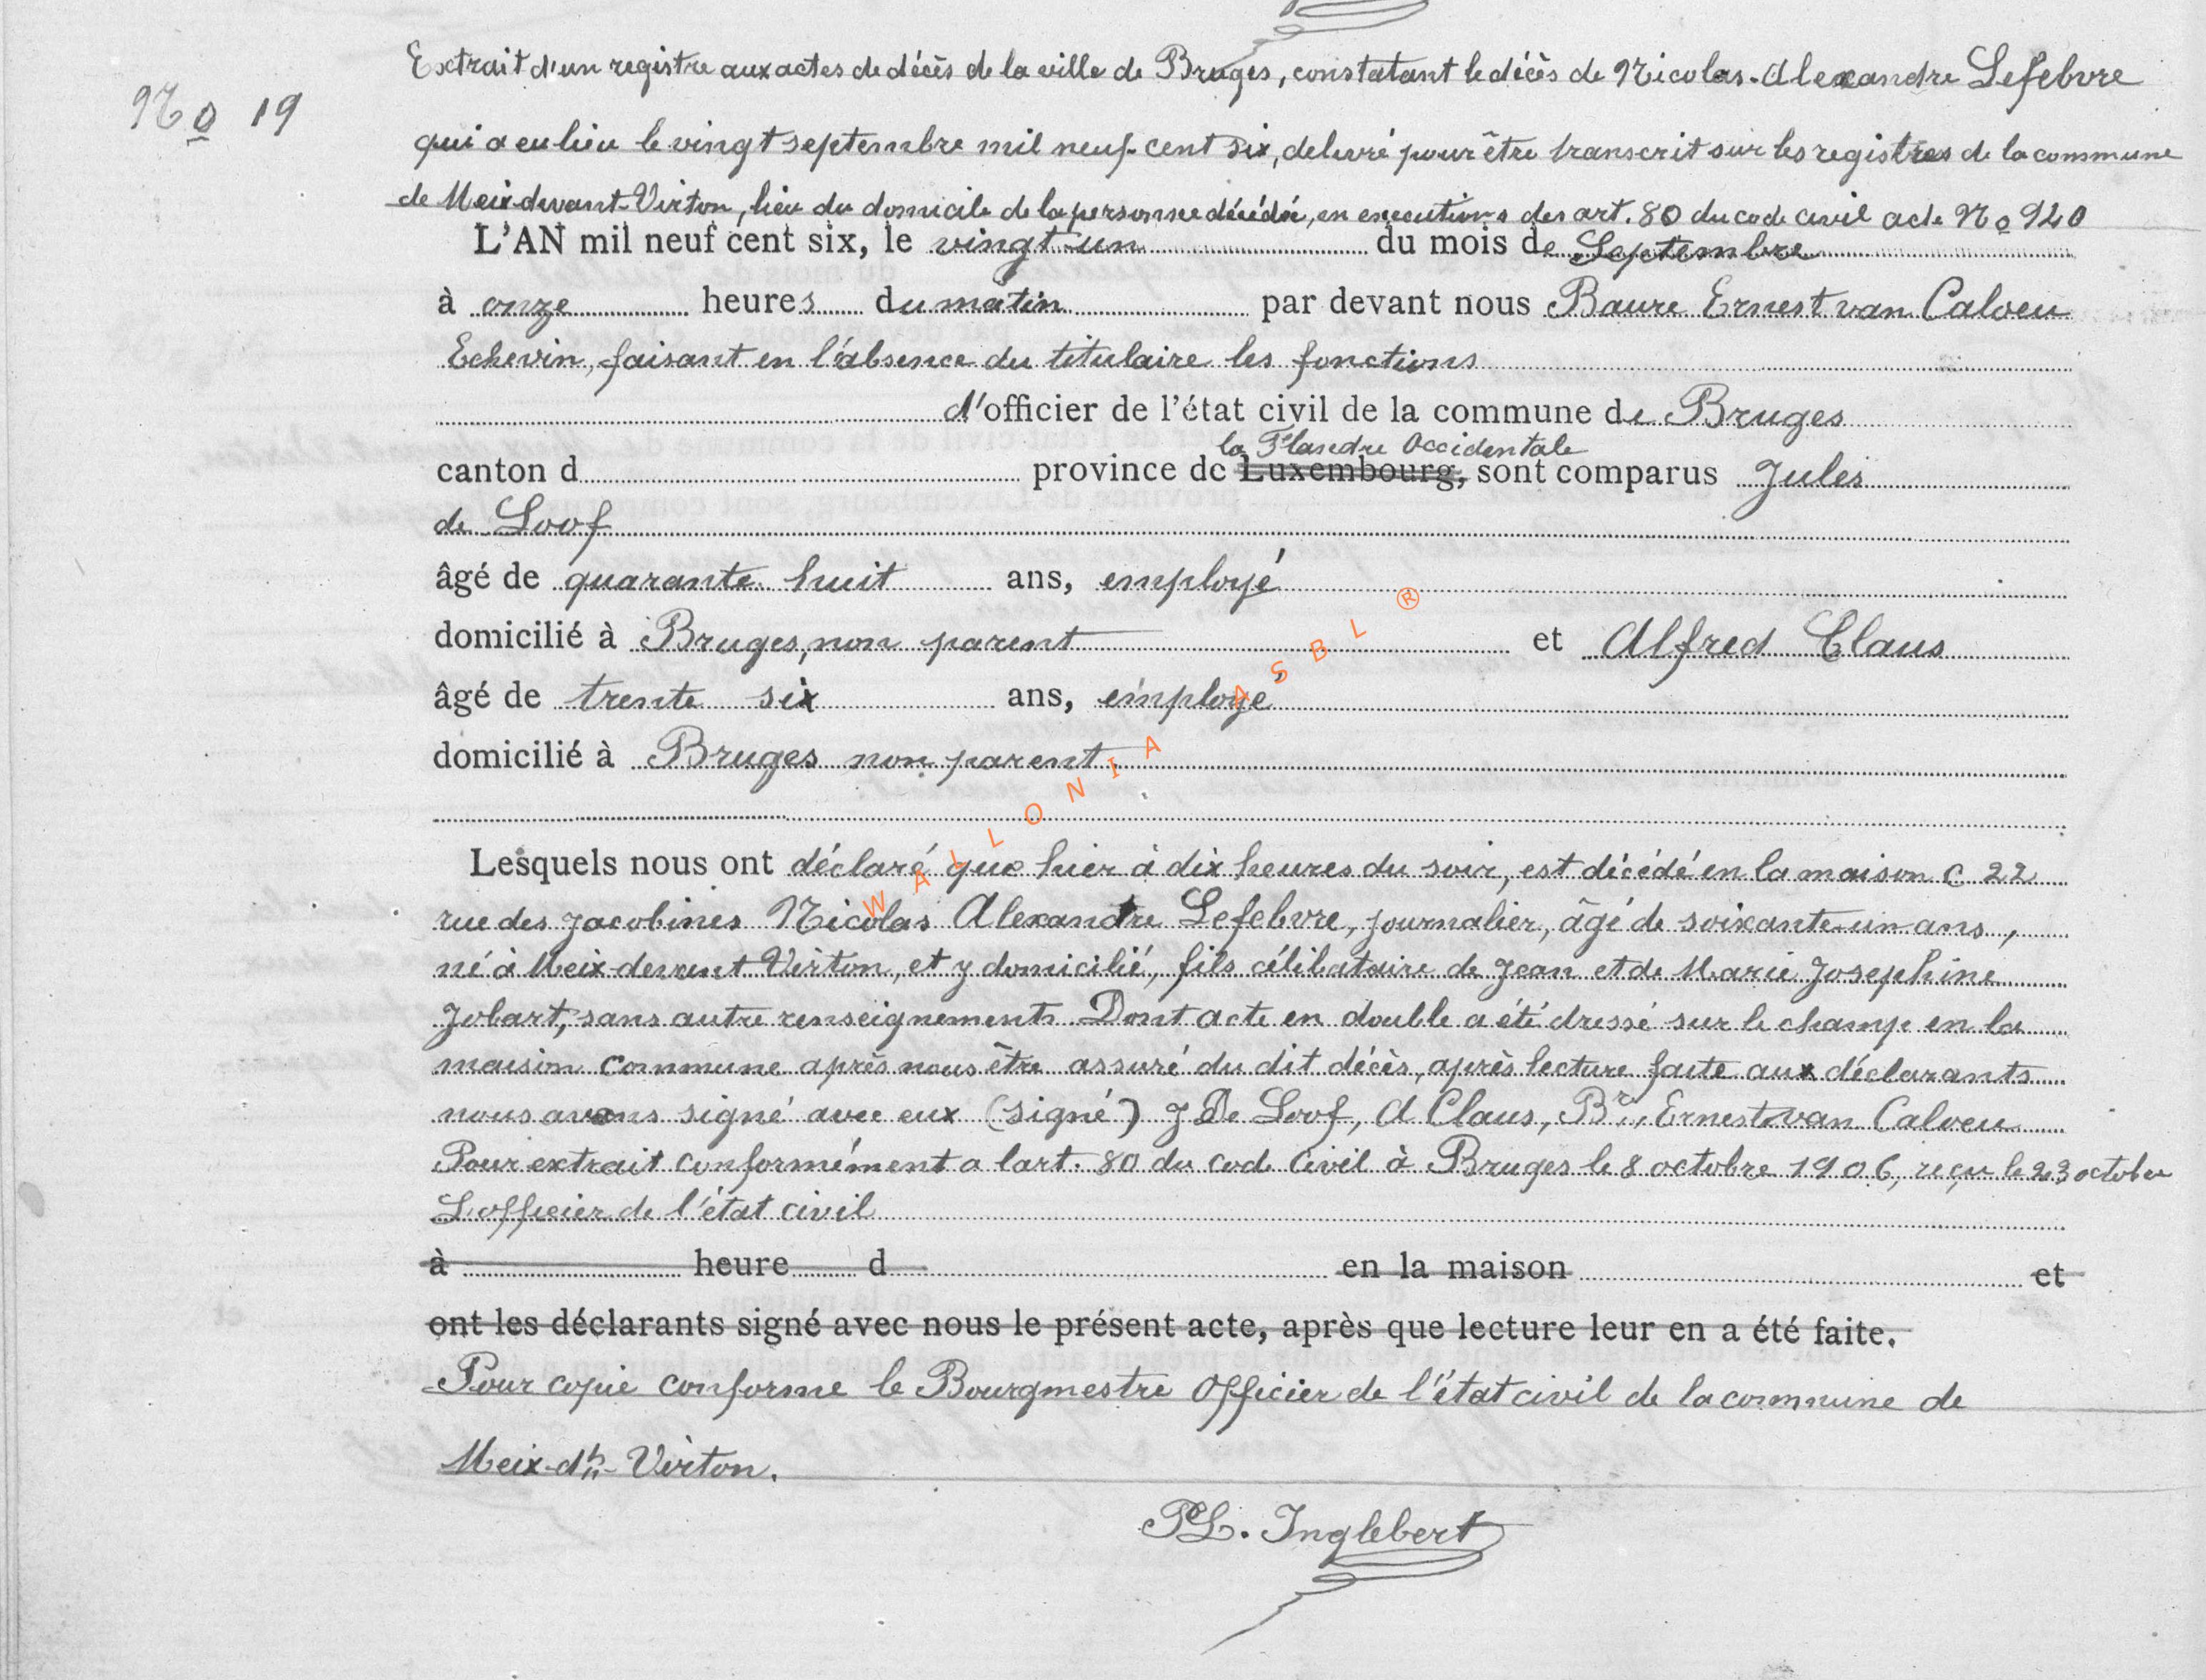 Extrait d'un registre aux actes de décès de la ville de Bruges, constatant le décès de Nicolas-Alexandre Lefebvre
No 19
qui a eu lieu le vingt septembre mil neuf cent six, delivré pour être transcrit sur les registres de la commune
de Meix-devant-Virton, lieu du domicile de la personne décédée, en executions des art. 80 du code civil acte No 920
L'AN mil neuf cent six, le vingt-un du mois de Septembre
à onze heures du matin par devant nous Ernest van Caloen
Echevin, faisant en l'absence du titulaire les fonctions
d'officier de l'état civil de la commune de Bruges
la Flandre Occidentale
canton d province de Luxembourg, sont comparus Jules
de Loof
âgé de quarante huit ans, employé
domicilié à Bruges, non parent et Alfred Claus
âgé de trente six ans, employé
domicilié à Bruges non parent.
Lesquels nous ont déclaré que hier à dix heures du soir, est décédé en la maison C 22
rue des Jacobines Nicolas Alexandre Lefebvre, journalier, âgé de soixante-un ans,
né à Meix-devant Virton, et y domicilié, fils célibataire de Jean et de Marie Josephine
Jobart, sans autre renseignements Dont acte en double a été dressé sur le champ en la
maison commune après nous être assuré du dit décès, après lecture faite aux déclarants
nous avons signé avec eux (signé) J De Loof, A Claus, Bon Ernest van Caloen
Pour extrait conformément a lart. 80 du cod Civil à Bruges le 8 octobre 1906, reçu le 23 octobre
L officier de l'état civil
à heure d en la maison et
ont les déclarants signé avec nous le présent acte, après que lecture leur en a été faite.
Pour copie conforme le Bourgmestre Officier de l'état civil de la commune de
Meix-dt-Virton.
Inglebert
WALLONIA ASBL ®